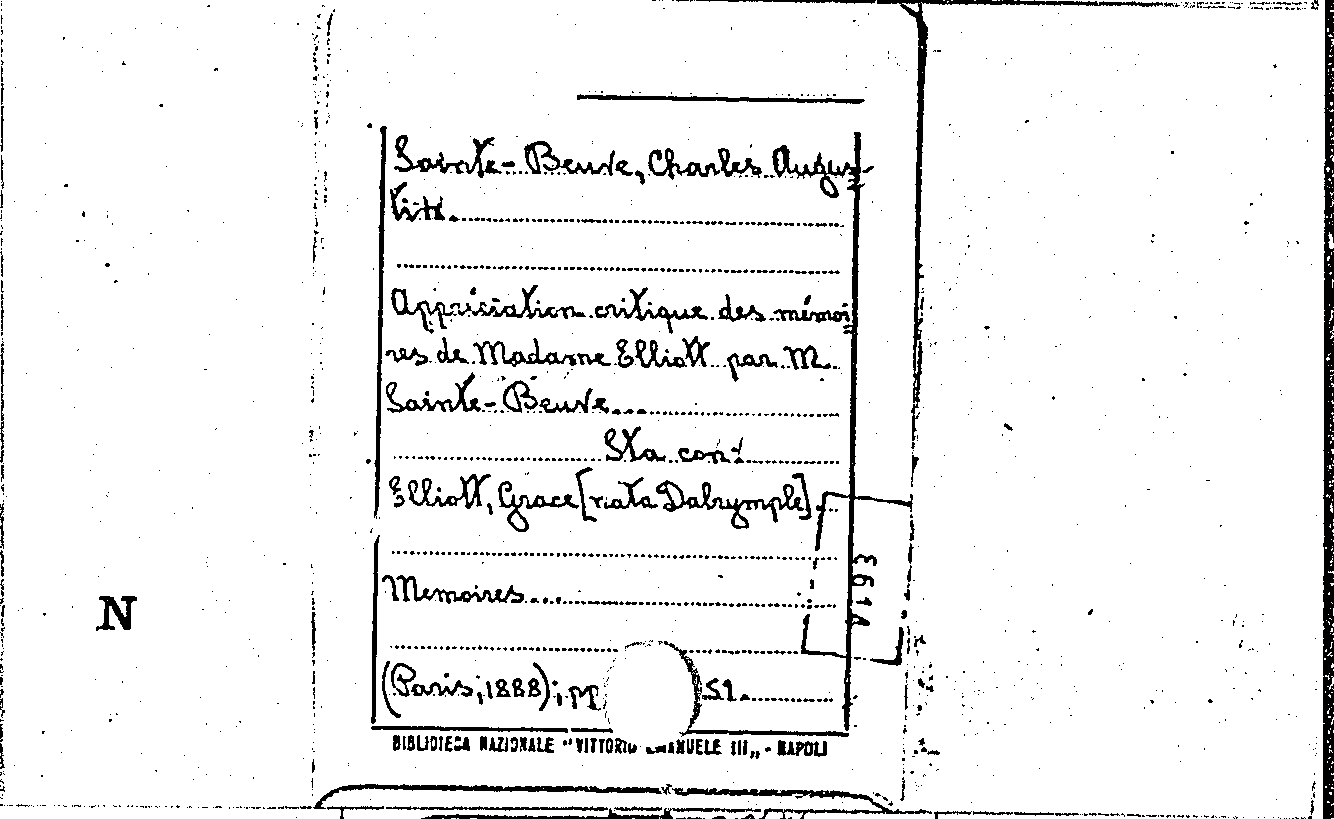 Sainte-Beuve, Charles Augus-
tin.
Appréciation critique des mémoi
res de Madame Elliott par M.
Sainte-Beuve...
Sta con:
Elliott, Grace [nata Dalrymple].
Memoires...
(Paris, 1888); pp 51.
BIBLIOTECA NAZIONALE "VITTORIO EMANUELE III„ - NAPOLI
N